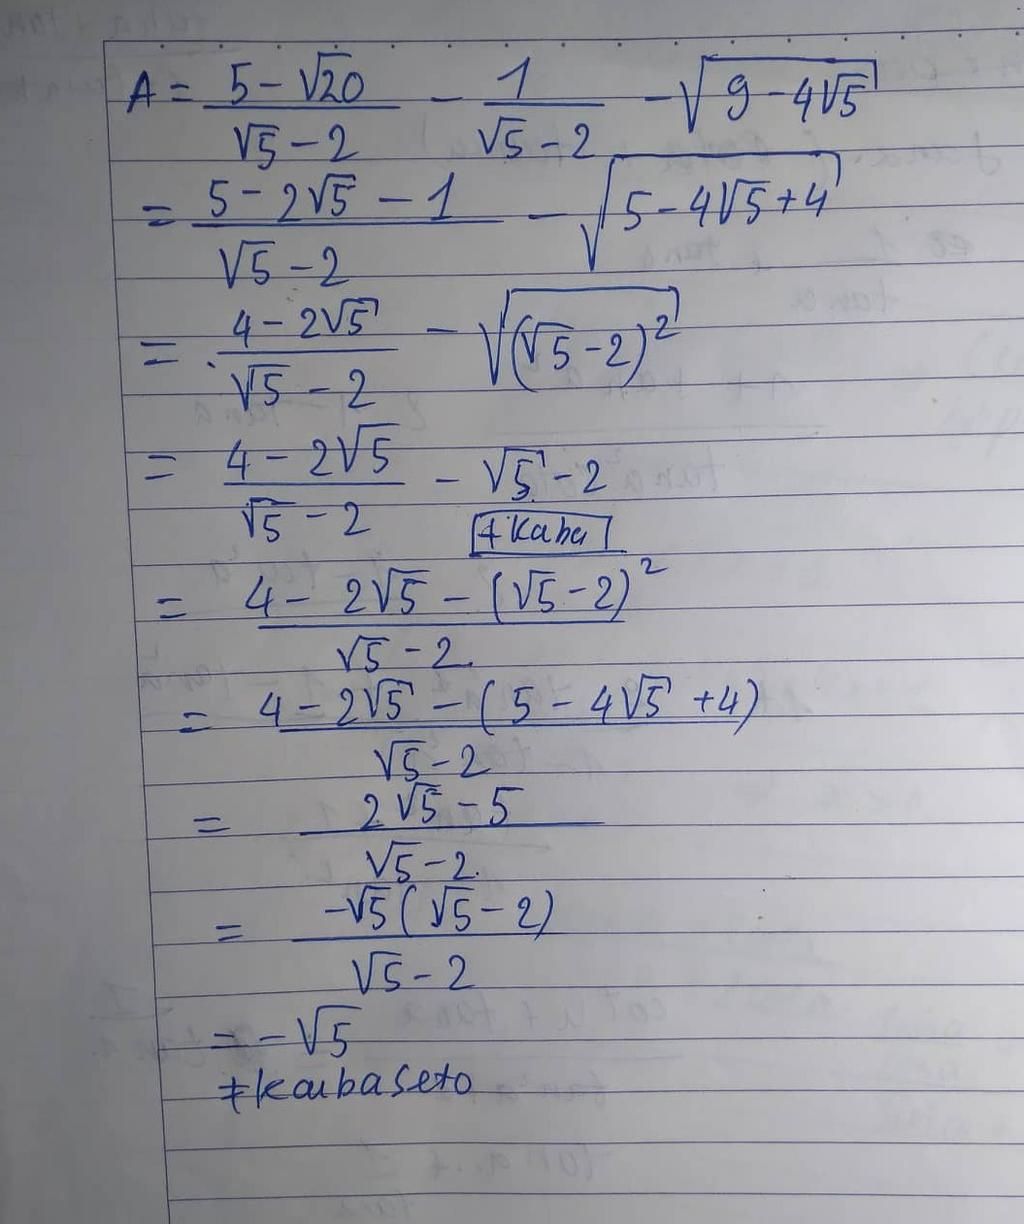 A = \frac{5-\sqrt{20}}{\sqrt{5}-2} - \frac{1}{\sqrt{5}-2} - \sqrt{9-4\sqrt{5}}
= \frac{5-2\sqrt{5}-1}{\sqrt{5}-2} - \sqrt{5-4\sqrt{5}+4}
= \frac{4-2\sqrt{5}}{\sqrt{5}-2} - \sqrt{(\sqrt{5}-2)^2}
= \frac{4-2\sqrt{5}}{\sqrt{5}-2} - \sqrt{5}-2
+Kaba
= \frac{4-2\sqrt{5}-(\sqrt{5}-2)^2}{\sqrt{5}-2}
= \frac{4-2\sqrt{5}-(5-4\sqrt{5}+4)}{\sqrt{5}-2}
= \frac{2\sqrt{5}-5}{\sqrt{5}-2}
= \frac{-\sqrt{5}(\sqrt{5}-2)}{\sqrt{5}-2}
= -\sqrt{5}
≠kaibaseto